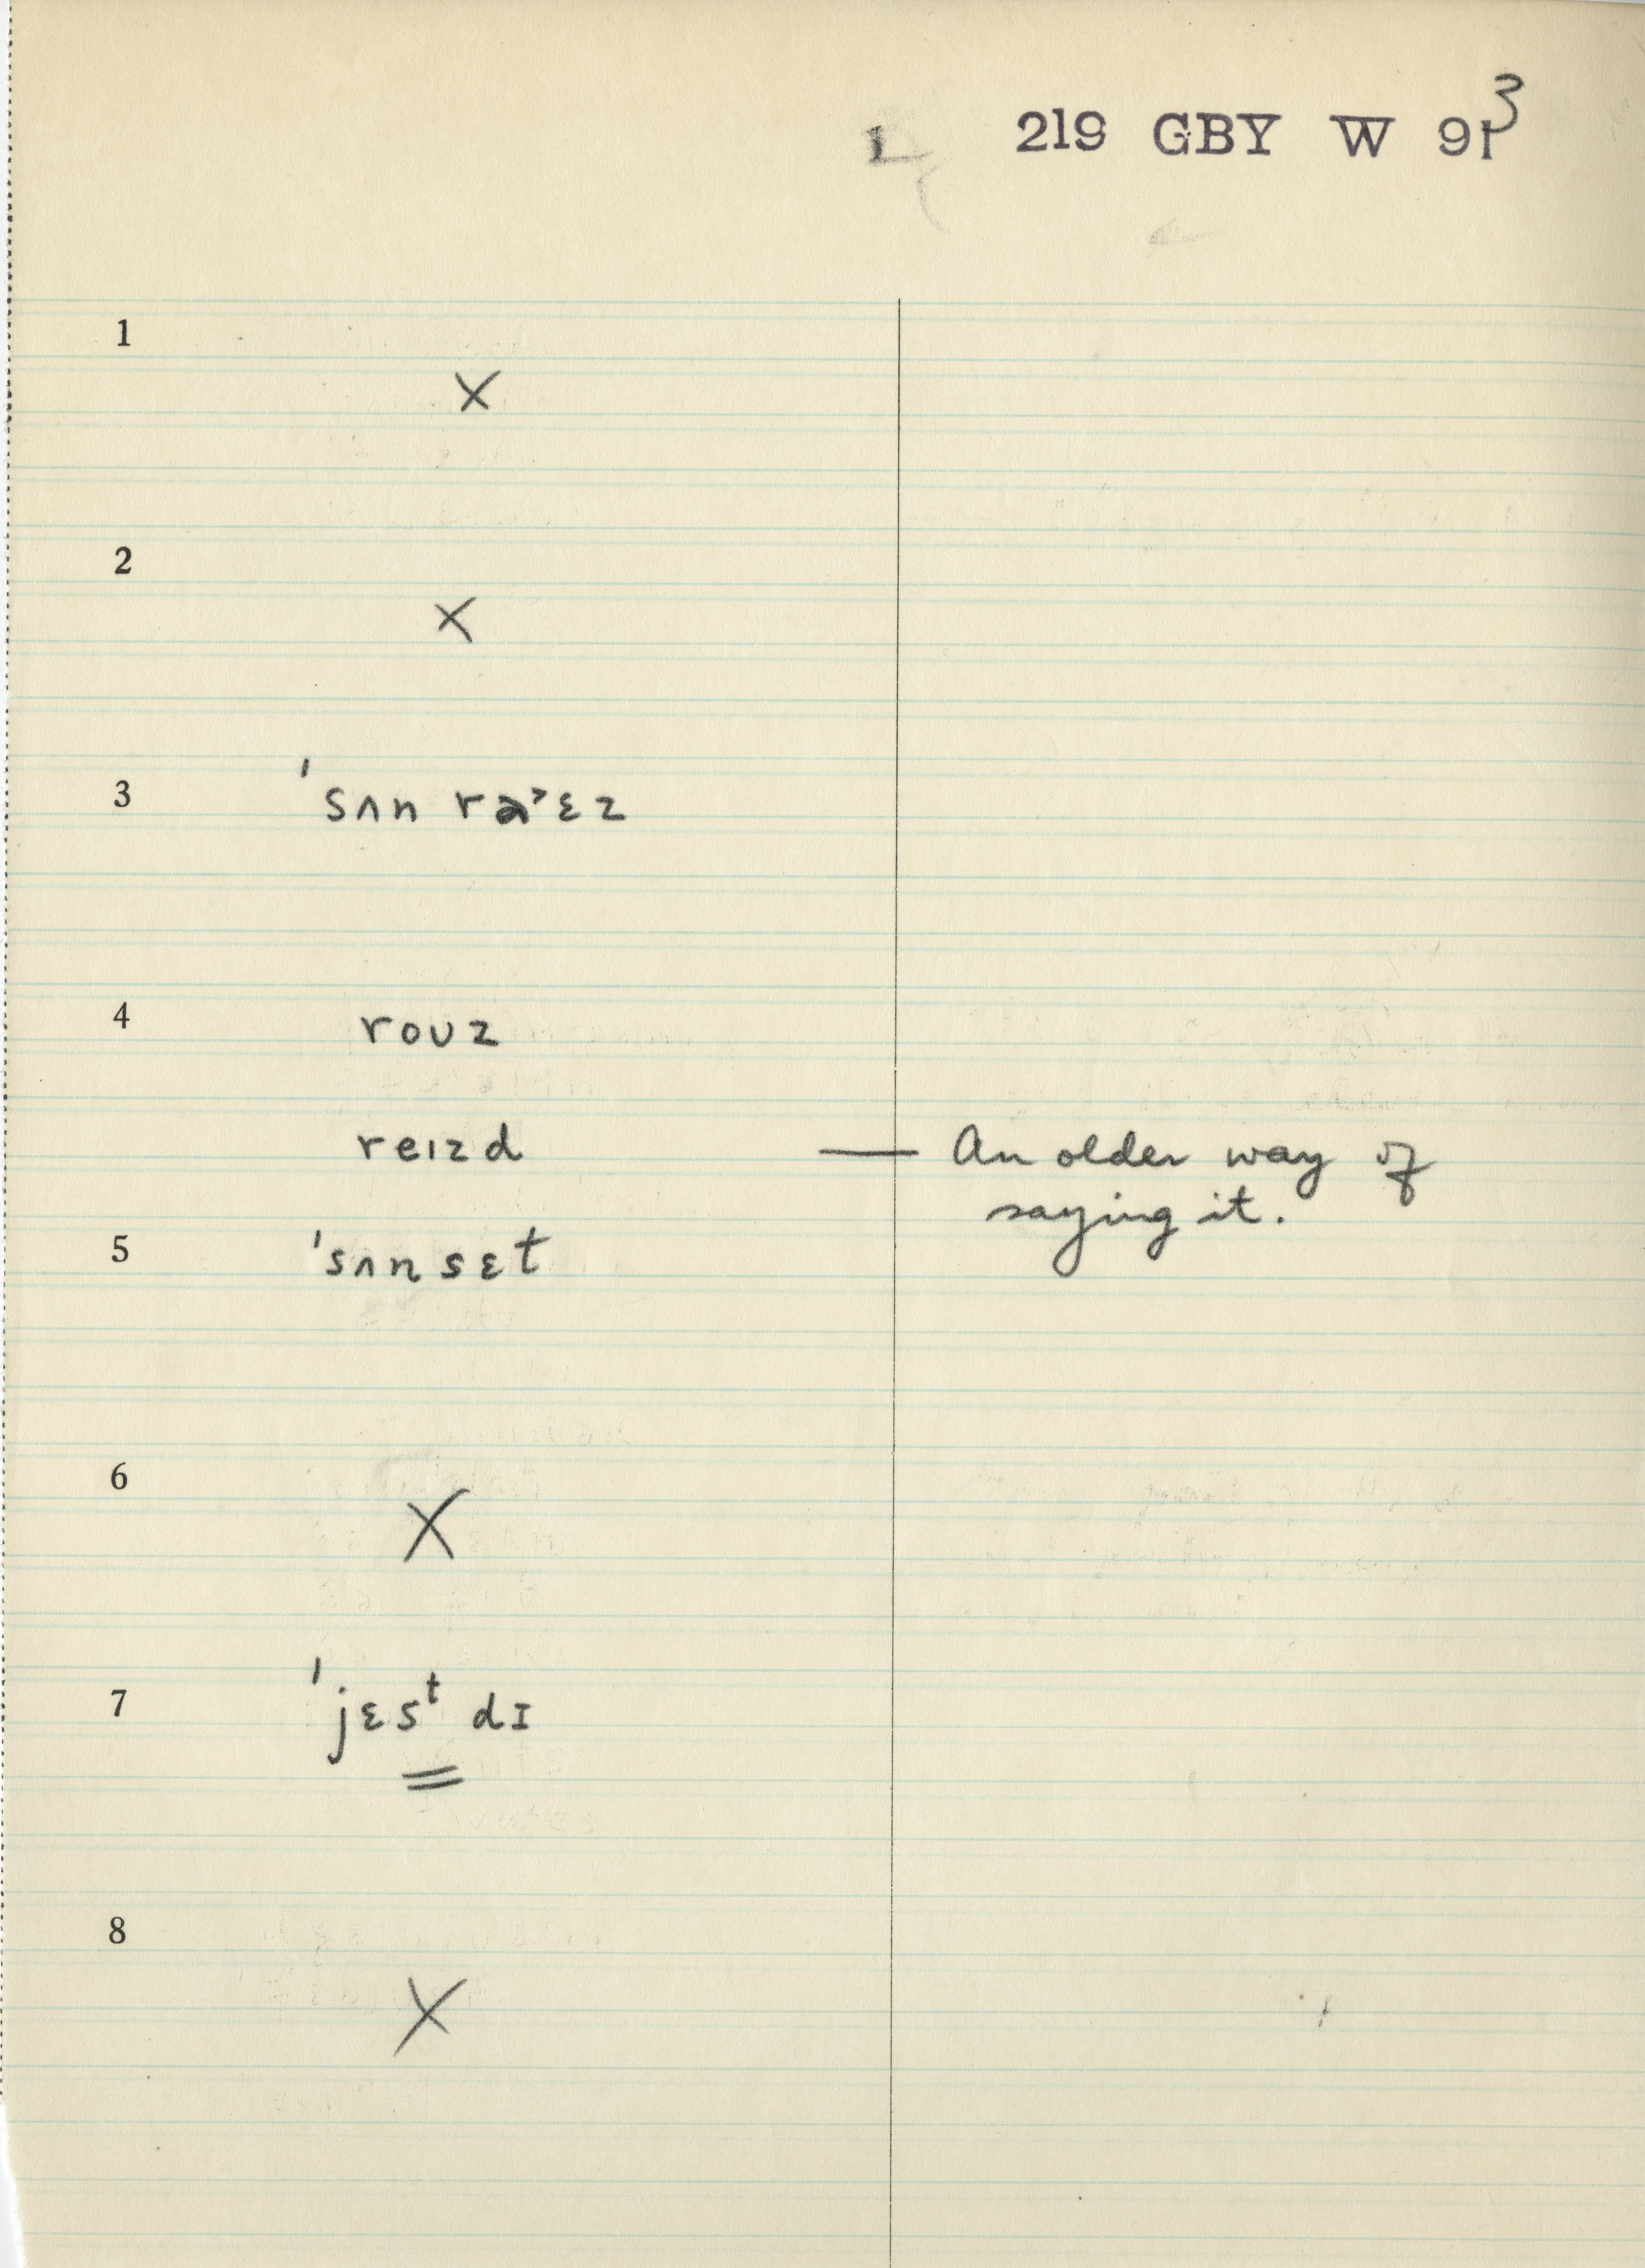 219 GBY W 91 3
1
X
2
X
3 ˈsʌn raˀɛz
4 roʊz
reɪzd — An older way of
saying it.
5 ˈsʌn sɛt
6
X
7 ˈjɛsᵗ dɪ
8
X